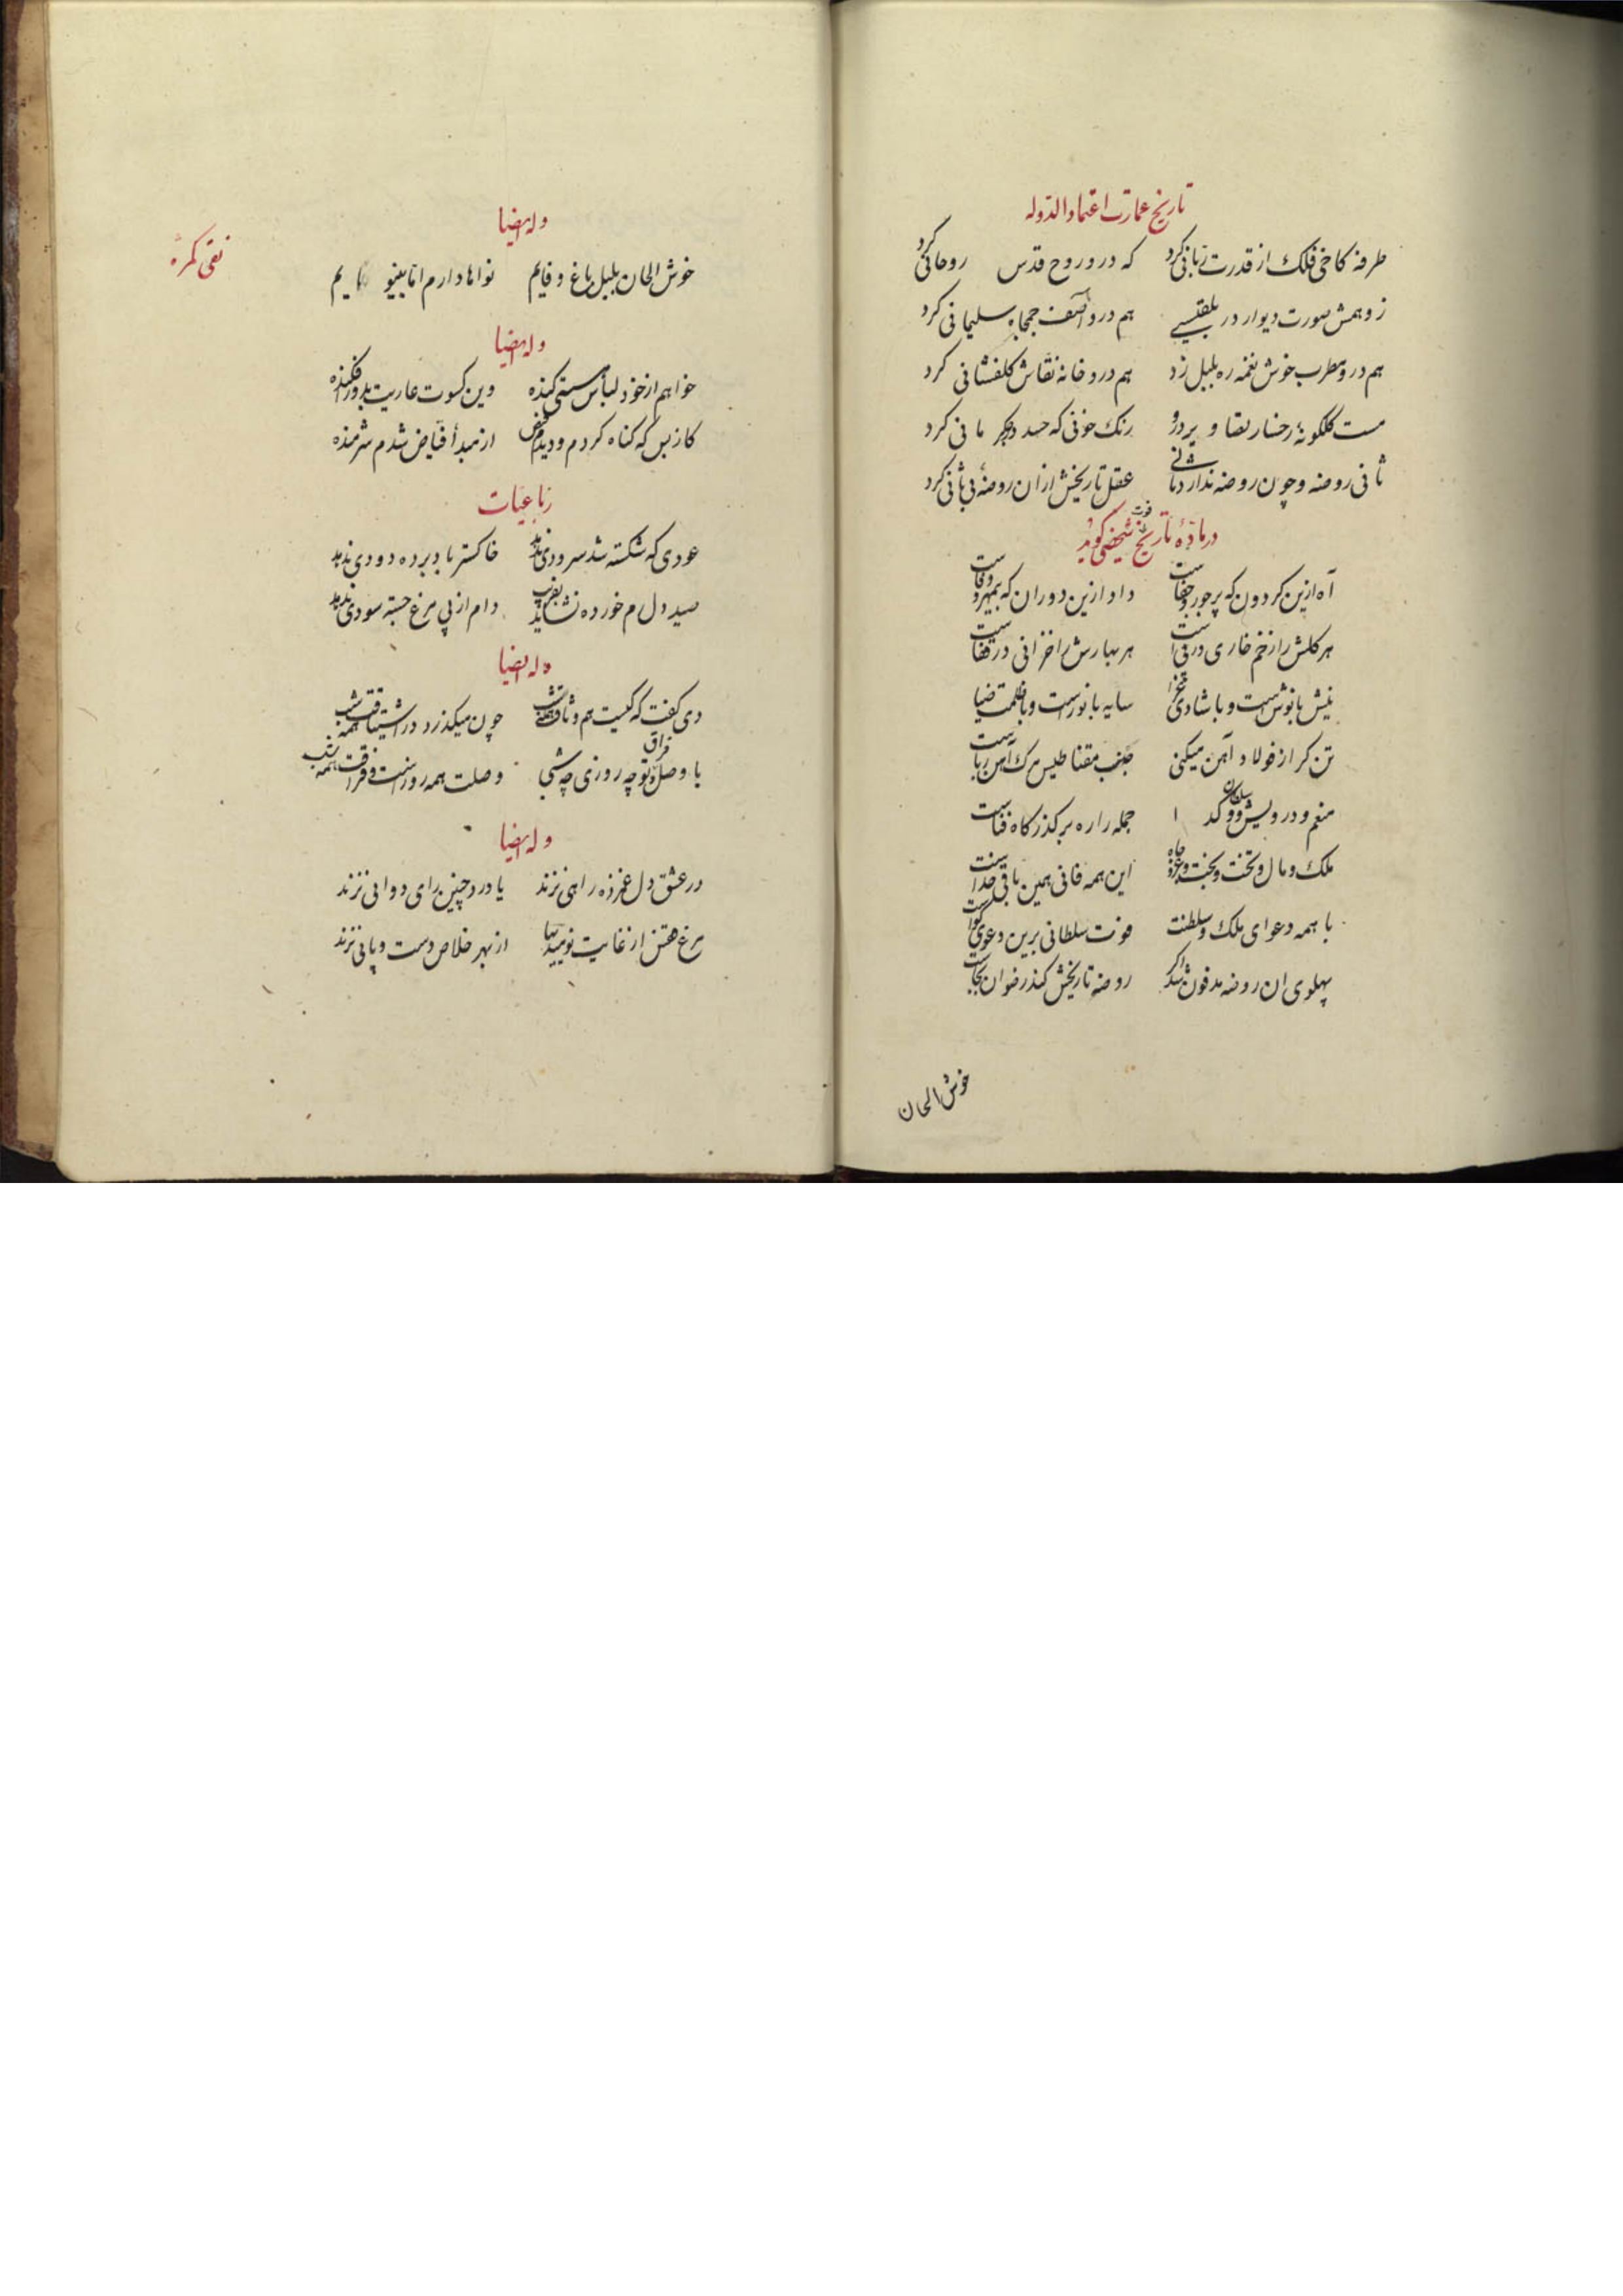 تاریخ عمارت اعتماد الدوله
طرفه کاخی فلک از قدرت ربانی کرد که درو روح قدس روحانی کرد
زوهمش صورت دیوار در بلقیسے هم درو آصف جمجاه سلیمانی کرد
هم درو مطرب خوش نغمه ره بلبل زد هم درو خانه نقاش کلفشانی کرد
ست کلکونهٔ رخسار تصاویر درو رنک خونی که حسد در جکر مانی کرد
ثانی روضه و چون روضه ندارد ثانی عقل تاریخش ازان روضهٔ بی ثانی کرد
در مادهٔ تاریخ فوت شخصی کوید
آه ازین کردون که پر جور و جفاست داد ازین دوران که بیمهر و وفاست
هر کلش را زخم خاری در پی است هر بهارش را خزانی در قفاست
نیش با نوش است و با شادی سایه با نور است و با ظلمت ضیا
تن کر از فولاد و آهن میکنی جذب مقناطیس مرک آهن رباست
منعم و درویش و سلطان و کدا جمله را ره بر کذرکاه فناست
ملک و مال و تخت و بخت و عز و جاه این همه فانی همین باقی خداست
با همه دعوای ملک و سلطنت فوت سلطانی برین دعوی کواست
پهلوی ان روضه مدفون شد اکر روضه تاریخش کند رضوان بجاست
خوش الحان
وله ایضا
نقی کمره
خوش الحان بلبل باغ وفایم نواها دارم اما بینوایم
وله ایضا
خواهم از خود لباس هستی کنده وین کسوت عاریت بدور افکنده
کاز بس که کناه کردم و دیدم فیض از مبدأ فیاض شدم شرمنده
رباعیات
عودی که شکسته شد سرودی ندهد خاکستر باد برده دودی ندهد
صید دل رم خورده نشاید بفریب دام از پی مرغ جسته سودی ندهد
وله ایضا
دی کفت که کیست هم وثاقت همه شب چون میکذرد در اشتیاقت همه شب
با وصل و فراق تو چه روزی چه شبی وصلت همه روز است و فراقت همه شب
وله ایضا
در عشق دل غمزده راهی نزند یا درد چنین رای دوائی نزند
مرغ قفس از غایت نومیدیها از بهر خلاص دست و پائی نزند